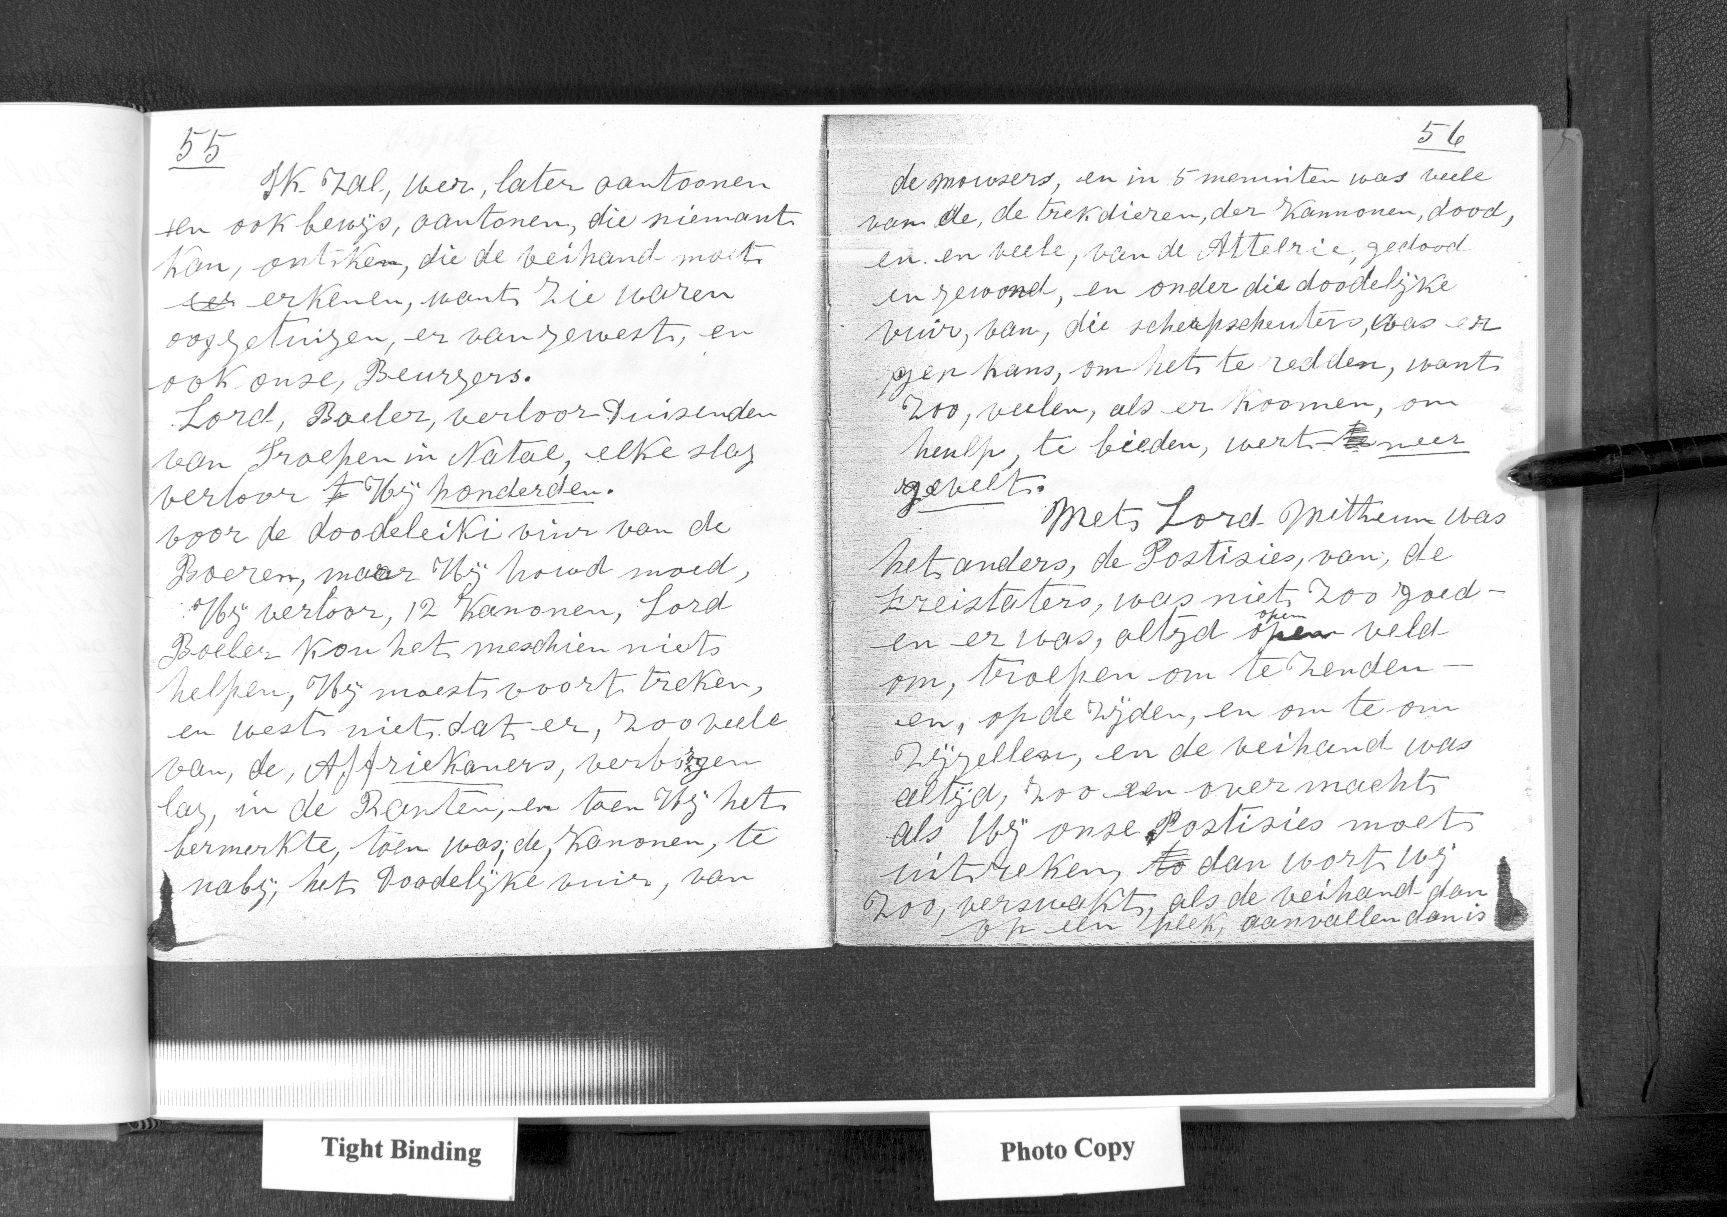 55
Ik Zal, wer, later aantoonen
en ook bewijs, aantonen, die niemant
kan, ontken, die de veihand moet
erkenen, want zie waren
ooggetuigen, er van gewest, en
ook onse, Beurgers.
Lord, Boeler, verloor Duisenden
van Troepen in Natal, elke slag
verloor Hij honderden.
voor de doodeleiki vuur van de
Boeren, maar Hij howd moed,
Hij verloor, 12 Kanonen, Lord
Boeler kon het meschien niet
helpen, Hij moest voort treken,
en west niet dat er, zoo veele
van, de, Affriekaners, verborgen
lag, in de Ranten, en toen Hij het
bermerkte, toen was, de, Kanonen, te
naby, het Doodelijke vuir, van
56
de mowsers, en in 5 menuiten was veele
van de, de trekdieren, der Kannonen, dood,
en en veele, van de Attelrie, gedood
en gewond, en onder die doodelijke
vuir, van, die scherpscheuters, was er
gen kans, om het te redden, want
Zoo, veelen, als er koomen, om
heulp, te bieden, wert neer
gevelt.
Met Lord Mitheun was
het anders, de Postisies, van, de
Freistaters, was niet Zoo goed -
en er was, altyd open open veld
om, troepen om te Zenden -
en, op de Zijden, en om te om
Zijgellen, en de veihand was
altijd, Zoo een over macht
als Wij onse Postisies moet
uitreken, to dan wort Wij
Zoo, verswakt, als de veihand dan
op een plek, aanvallen dan is
Tight Binding
Photo Copy